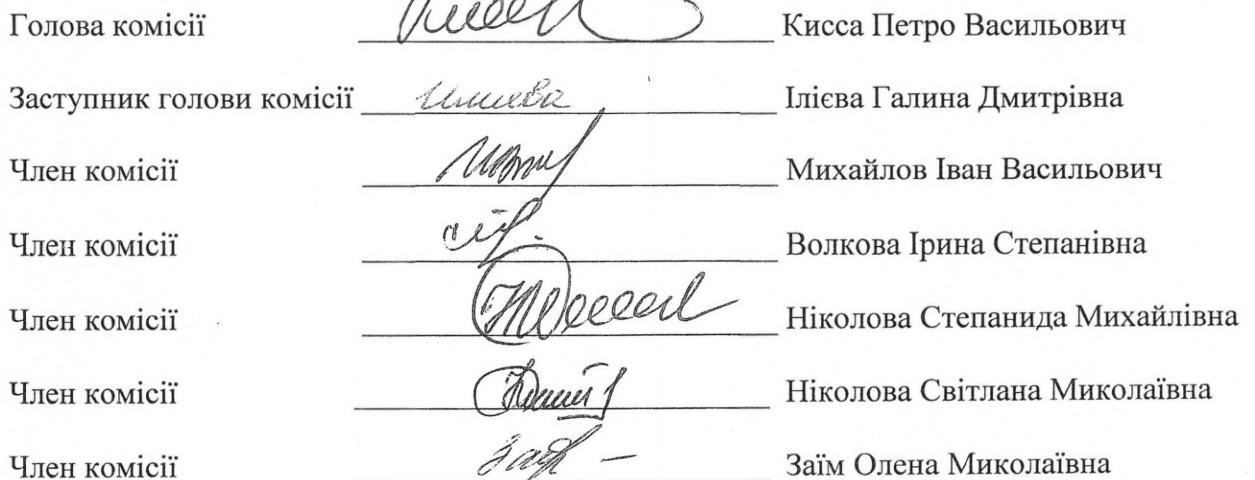 Голова комісії Кисса Петро Васильович
Заступник голови комісії Илиева Ілієва Галина Дмитрівна
Член комісії Михайлов Іван Васильович
Член комісії Волкова Ірина Степанівна
Член комісії Ніколова Степанида Михайлівна
Член комісії Ніколова Світлана Миколаївна
Член комісії Заїм Олена Миколаївна